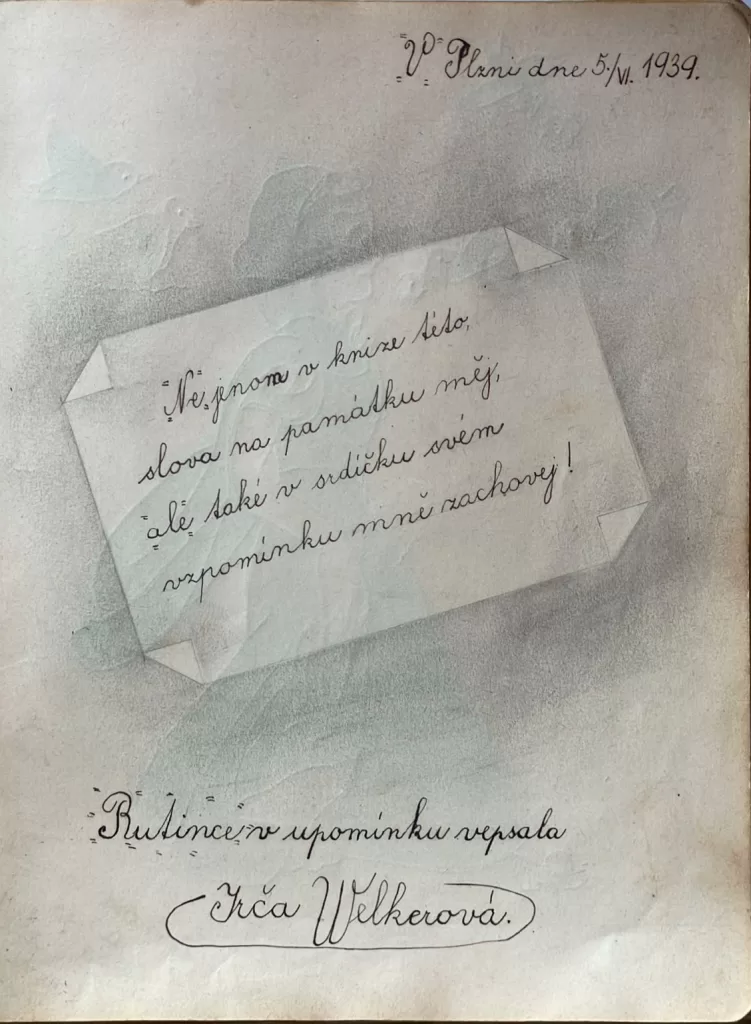 V Plzni dne 5./VI. 1939.
Ne jenom v knize této,
slova na památku měj,
ale také v srdíčku svém
vzpomínku mně zachovej!
Rutince v upomínku vepsala
Irča Welkerová.